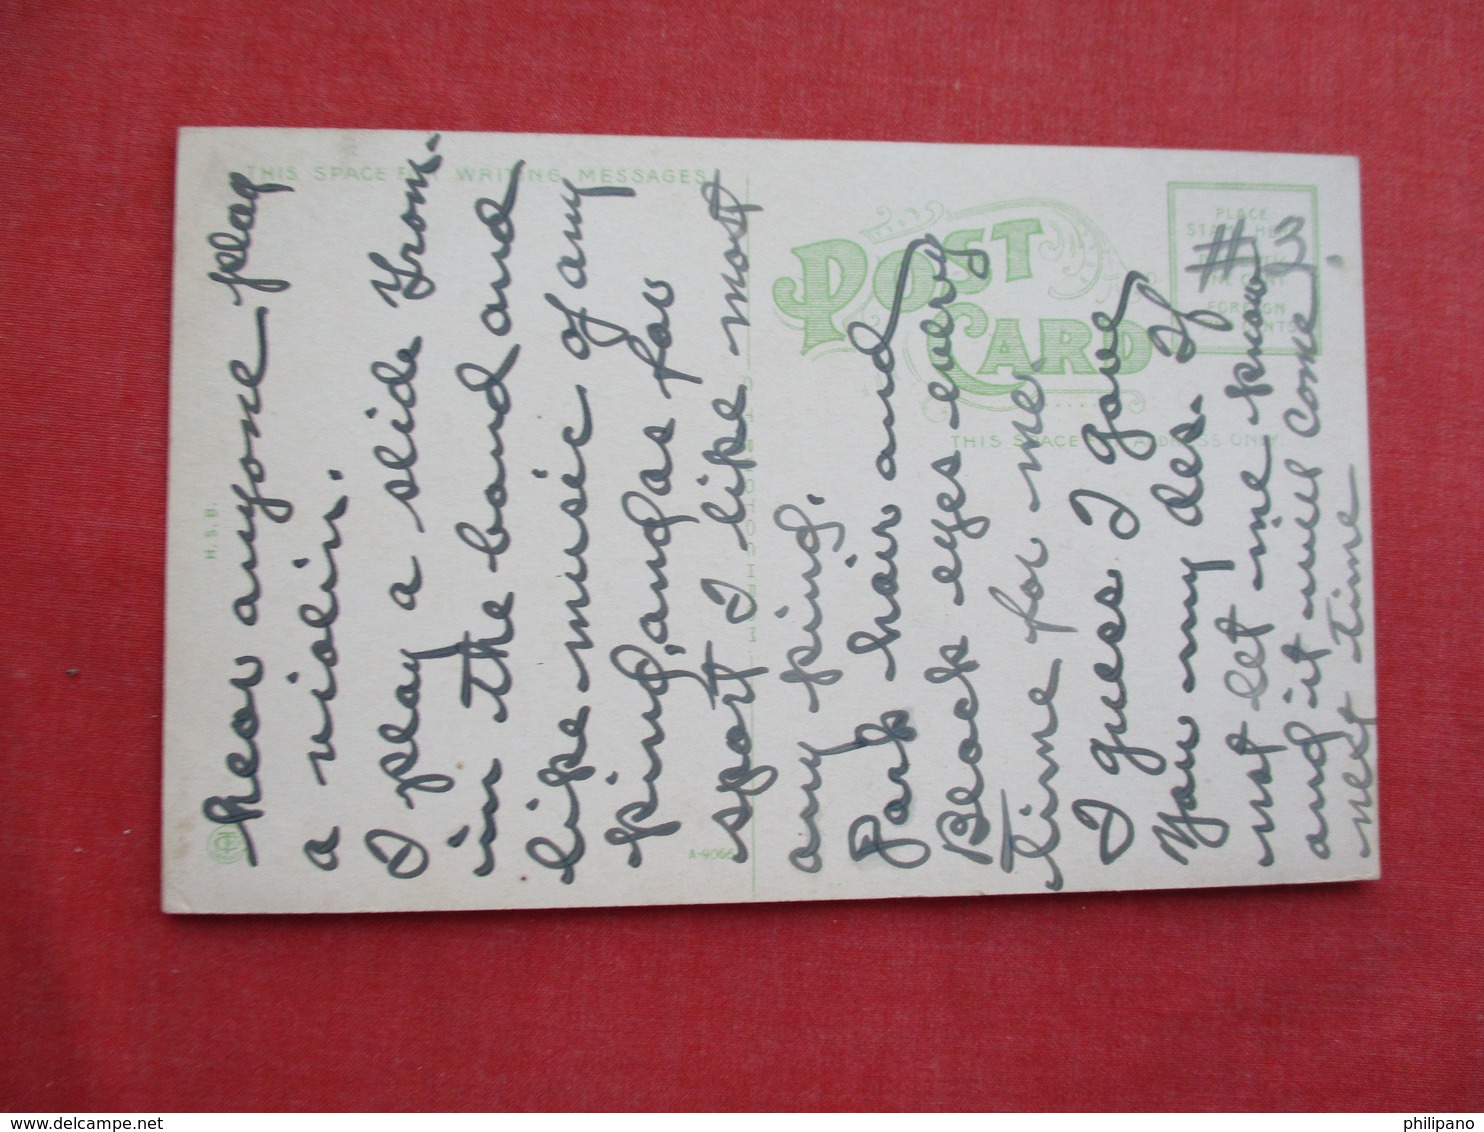 hear anyone play
a violin.
I play a slide Trom.
in the band and
like music of any
kind, and as for
sport I like most
any kind.
Dark hair and
Black eyes every
time for me.
I guess I gave
you my des. If
not let me know
and it will come
next time
#3.
THIS SPACE FOR WRITING MESSAGES
POST
CARD
THIS SPACE FOR ADDRESS ONLY.
PLACE
STAMP HERE
ONE CENT
FOREIGN
H.S.B.
A-9066
delcampe.net
philipano